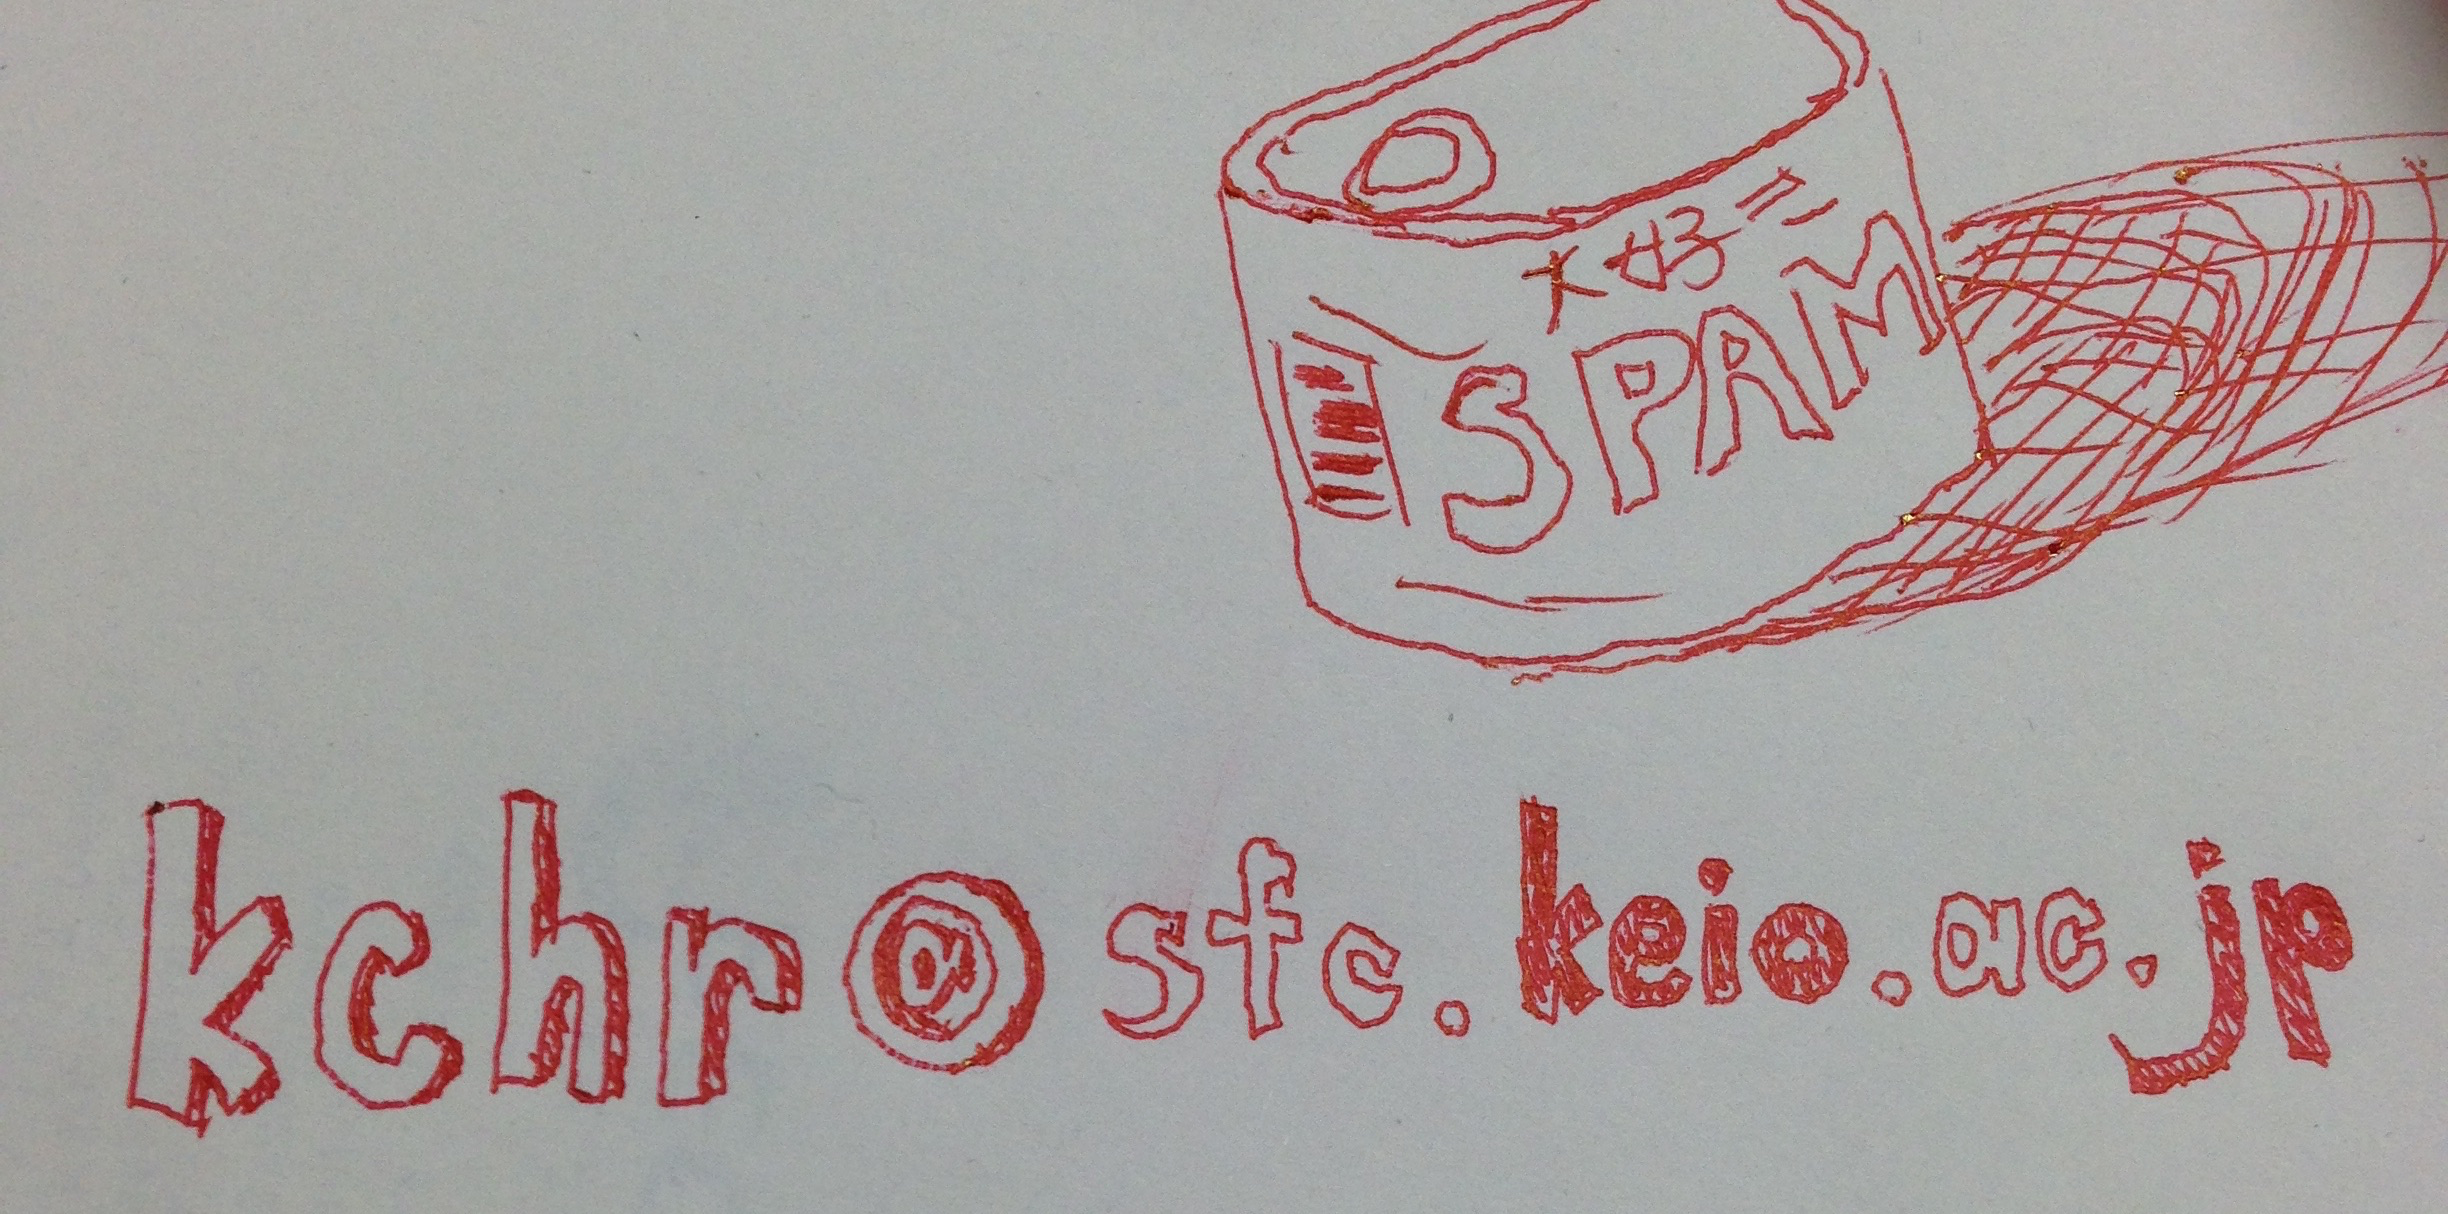 SPAM
kchr@sfc.keio.ac.jp